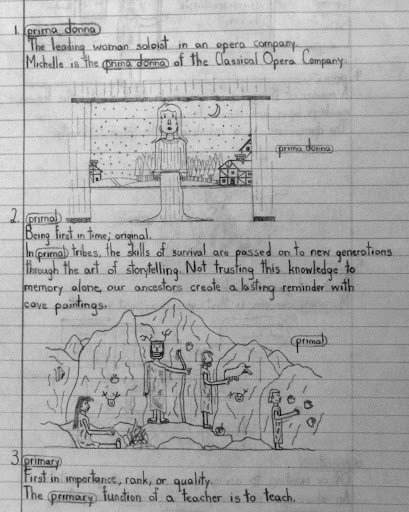 1. prima donna
The leading woman soloist in an opera company.
Michelle is the prima donna of the Classical Opera Company.
prima donna
2. primal
Being first in time; original.
In primal tribes, the skills of survival are passed on to new generations
through the art of storytelling. Not trusting this knowledge to
memory alone, our ancestors create a lasting reminder with
cave paintings.
primal
3. primary
First in importance, rank, or quality.
The primary function of a teacher is to teach.